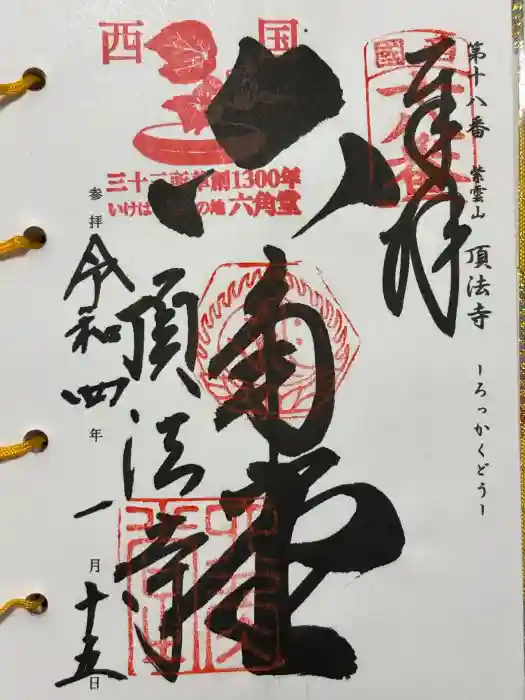 第十八番 紫雲山 頂法寺 ーろっかくどうー
奉拝
六角堂
頂法寺
参拝 令和四年一月十五日
西国
三十三所草創1300年
いけばな発祥の地 六角堂